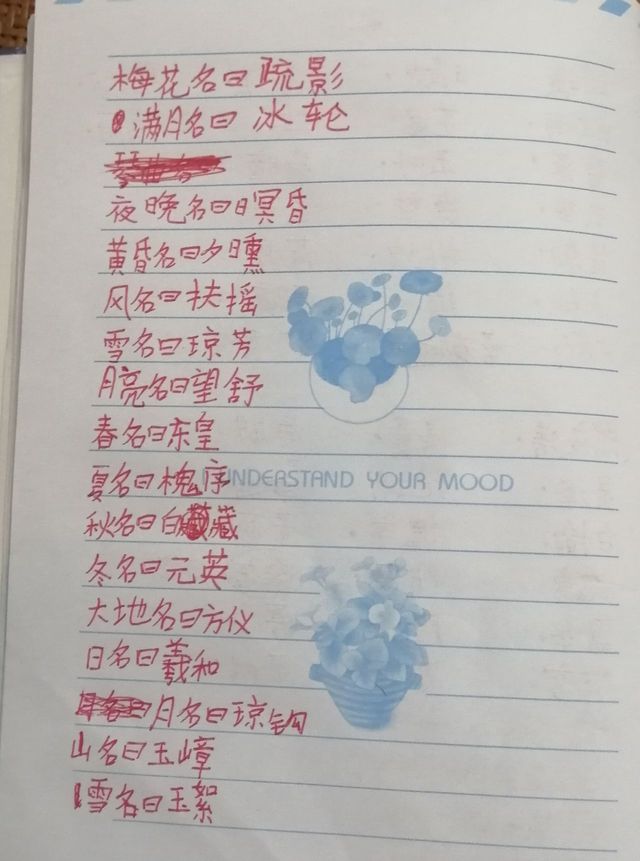 梅花名曰疏影
满月名曰 冰轮
夜晚名曰暝昏
黄昏名曰夕曛
风名曰扶摇
雪名曰琼芳
月亮名曰望舒
春名曰东皇
夏名曰槐序
UNDERSTAND YOUR MOOD
秋名曰白藏
冬名曰元英
大地名曰方仪
日名曰羲和
月名曰琼钩
山名曰玉嶂
雪名曰玉絮